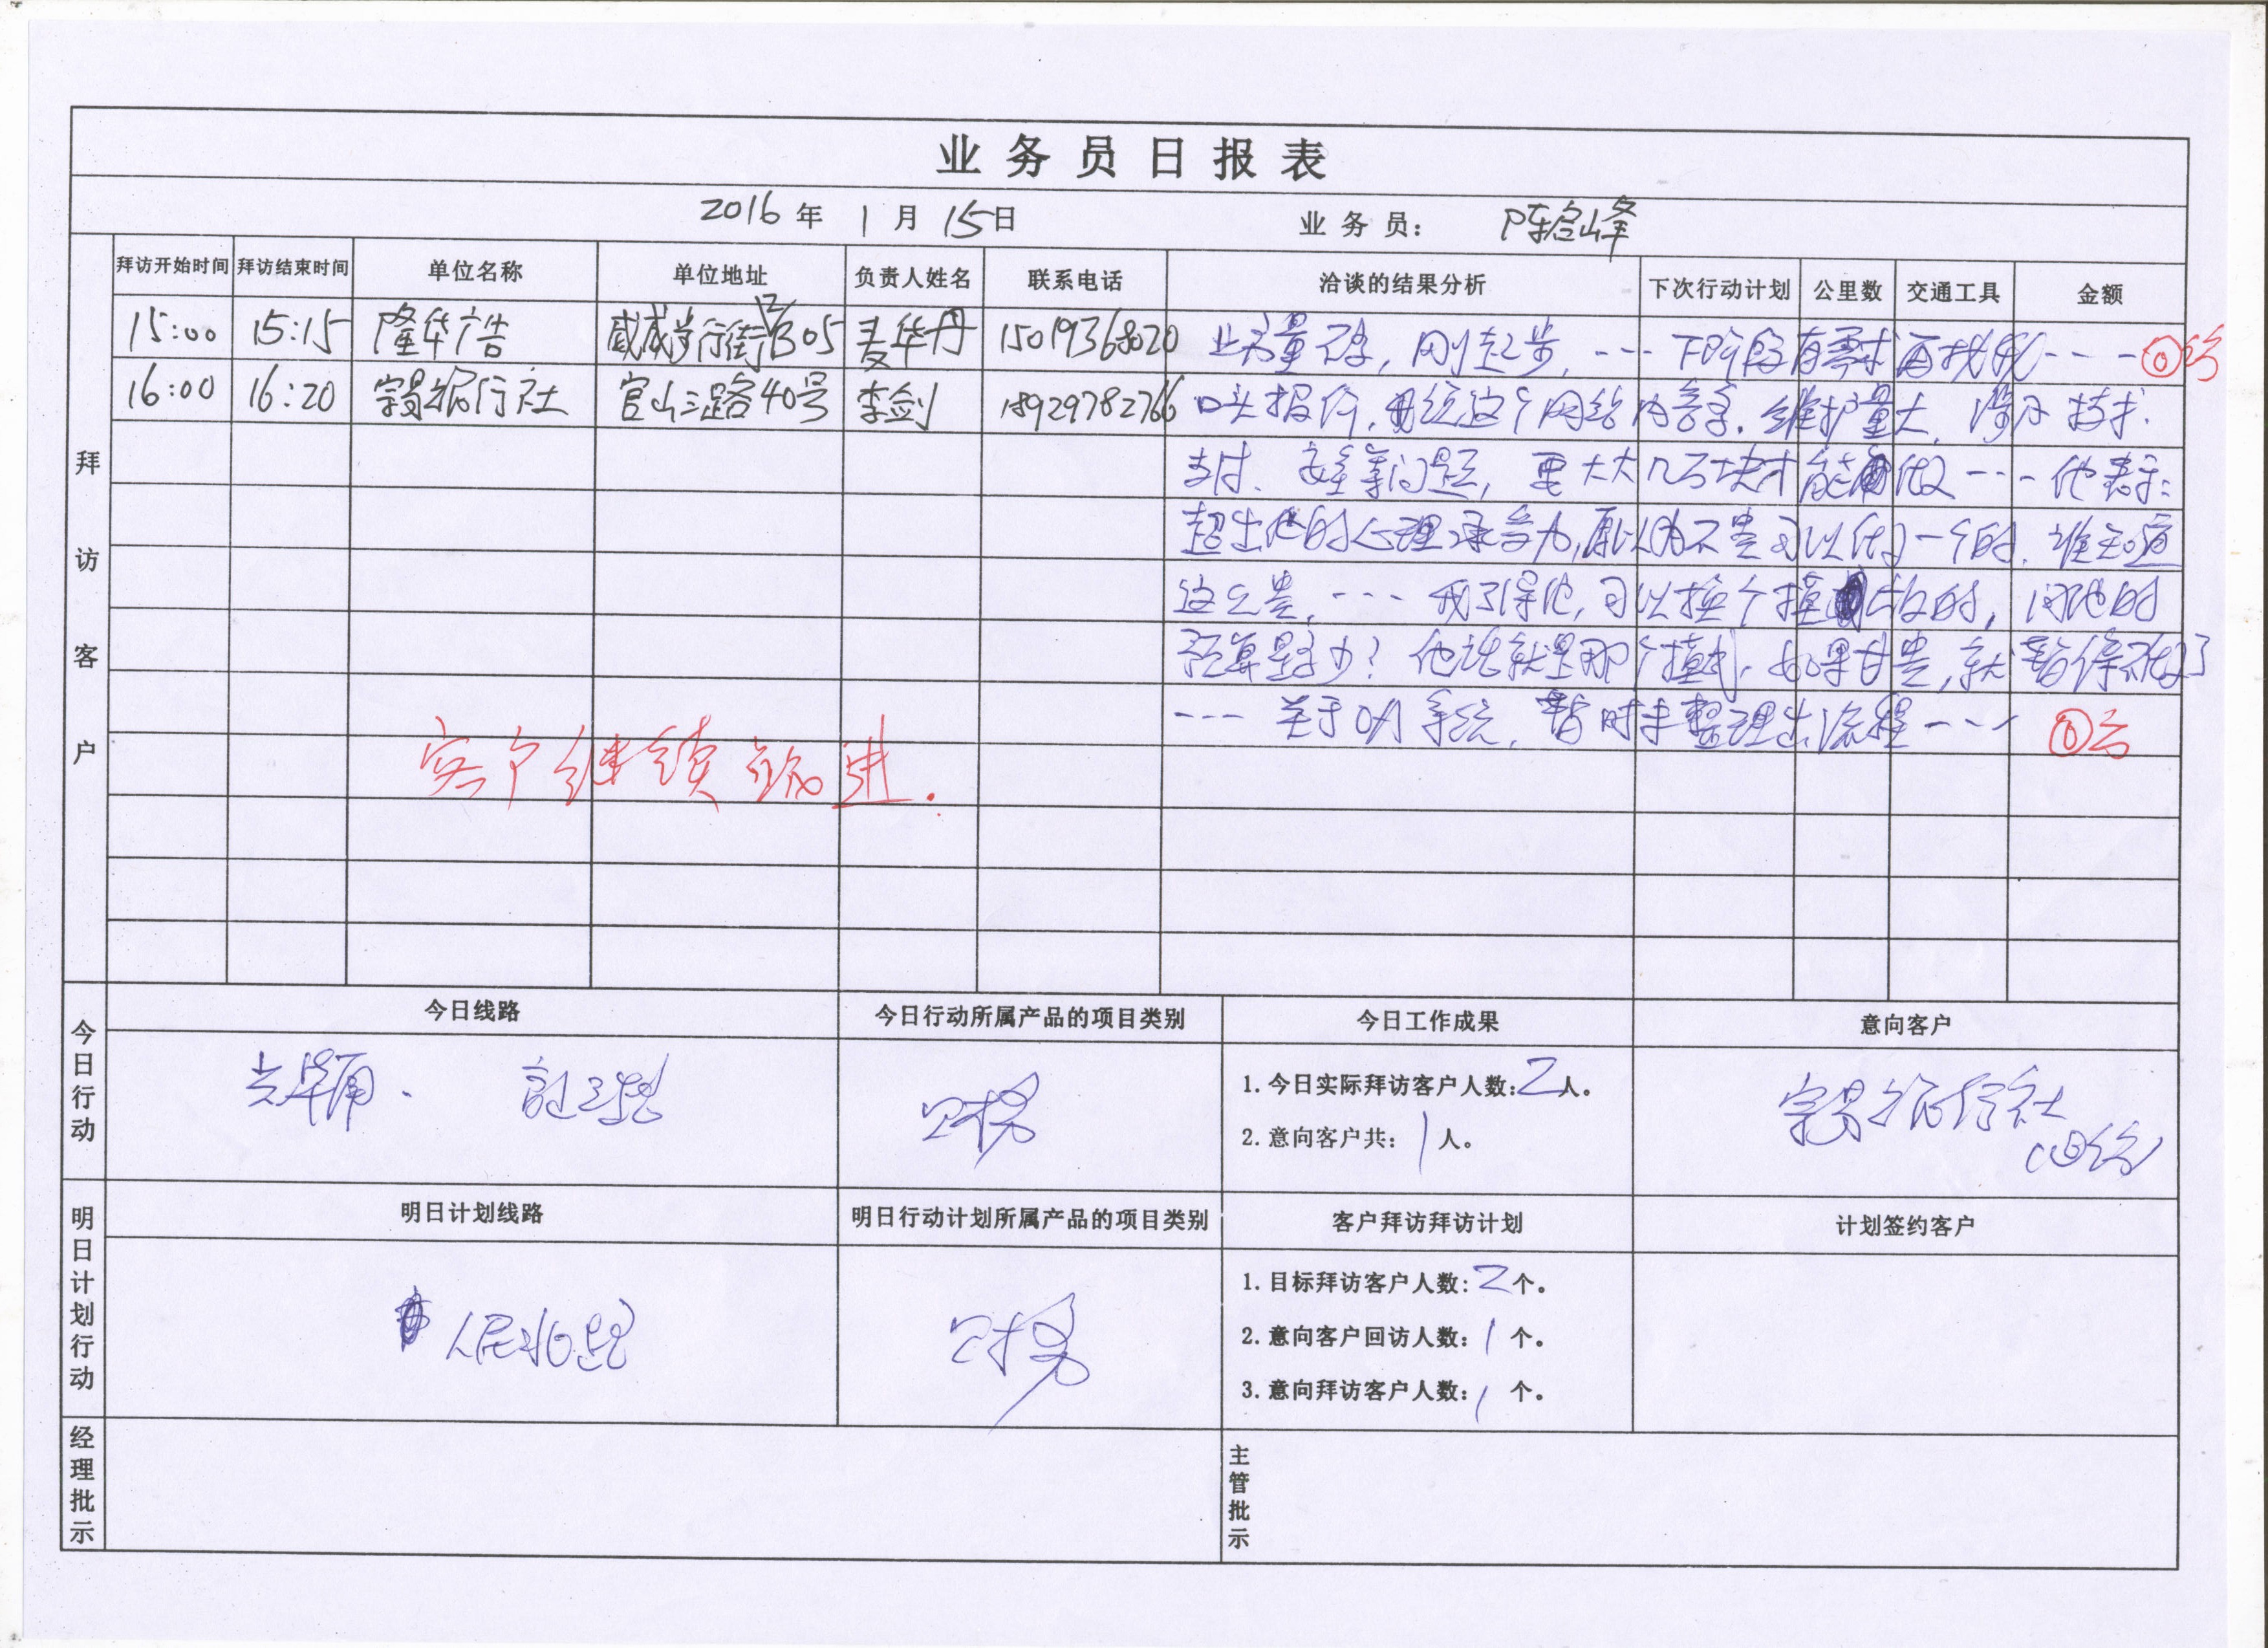 业务员日报表
2016年 1月 15日 业务员: 陈启峰
拜访开始时间 拜访结束时间 单位名称 单位地址 负责人姓名 联系电话 洽谈的结果分析 下次行动计划 公里数 交通工具 金额
拜访客户
15:00 15:15 隆华广告 305 麦华丹 15019368020 业务量不多, 刚起步, --- 下阶段有需求再找我---
16:00 16:20 旅行社 官山三路40号 李剑 18929782766 口头报价, 这个网站内容多, 维护量大, 技术
支付、安全等问题, 要大大几万块才能做---他表示:
超出他的心理承受力, 原以为不贵可以做一个的, 谁知道
这么贵, --- 可以换个 做的, 问他的
预算是多少? 他说就是那个模式, 如果甘贵, 就暂停不做了
--- 关于OA系统, 暂时未整理出流程---
客户继续跟进.
今日行动
今日线路 今日行动所属产品的项目类别 今日工作成果 意向客户
1.今日实际拜访客户人数:2人。
2.意向客户共: 1人。
旅行社
明日计划行动
明日计划线路 明日行动计划所属产品的项目类别 客户拜访拜访计划 计划签约客户
人民北路
1.目标拜访客户人数:2个。
2.意向客户回访人数: 1个。
3.意向拜访客户人数: 1个。
经理批示
主管批示